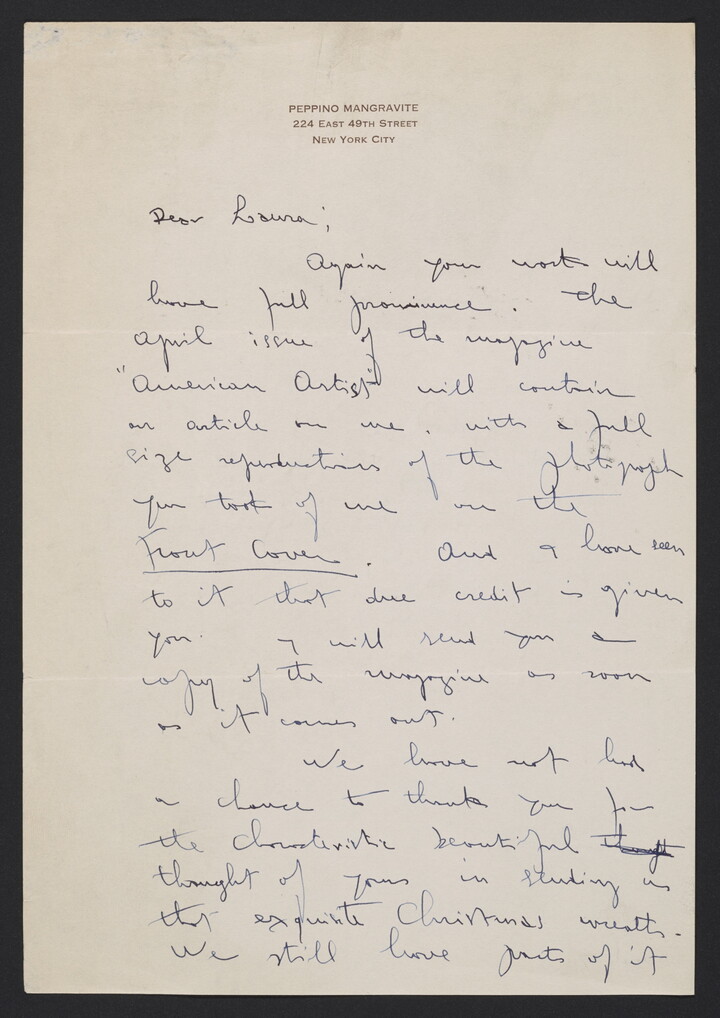 PEPPINO MANGRAVITE
224 EAST 49TH STREET
NEW YORK CITY
Dear Laura;
Again your work will
have full prominence. The
April issue of the magazine
"American Artist" will contain
an article on me, with a full
size reproduction of the photograph
you took of me on the
Front Cover. And I have seen
to it that due credit is given
you. I will send you a
copy of the magazine as soon
as it comes out.
We have not had
a chance to thank you for
the characteristic beautiful thought
thought of yours in sending us
that exquisite Christmas wreath.
We still have parts of it